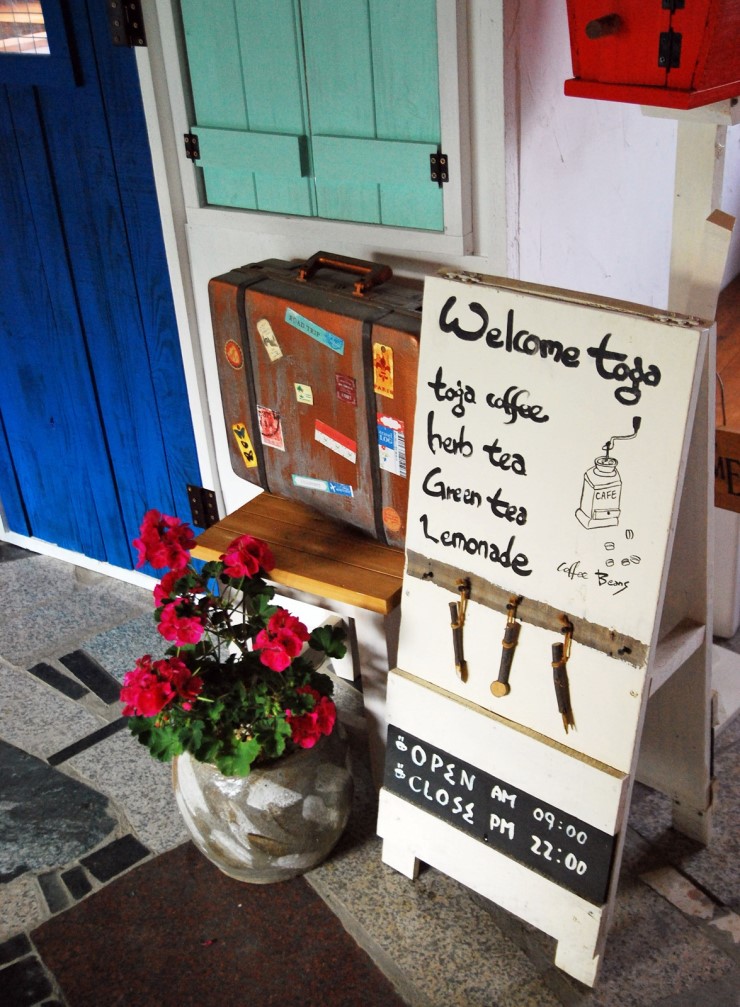 Welcome toga
toga coffee
herb tea
Green tea
Lemonade
CAFE
coffee Beans
OPEN AM 09:00
CLOSE PM 22:00
ROAD TRIP
PARIS